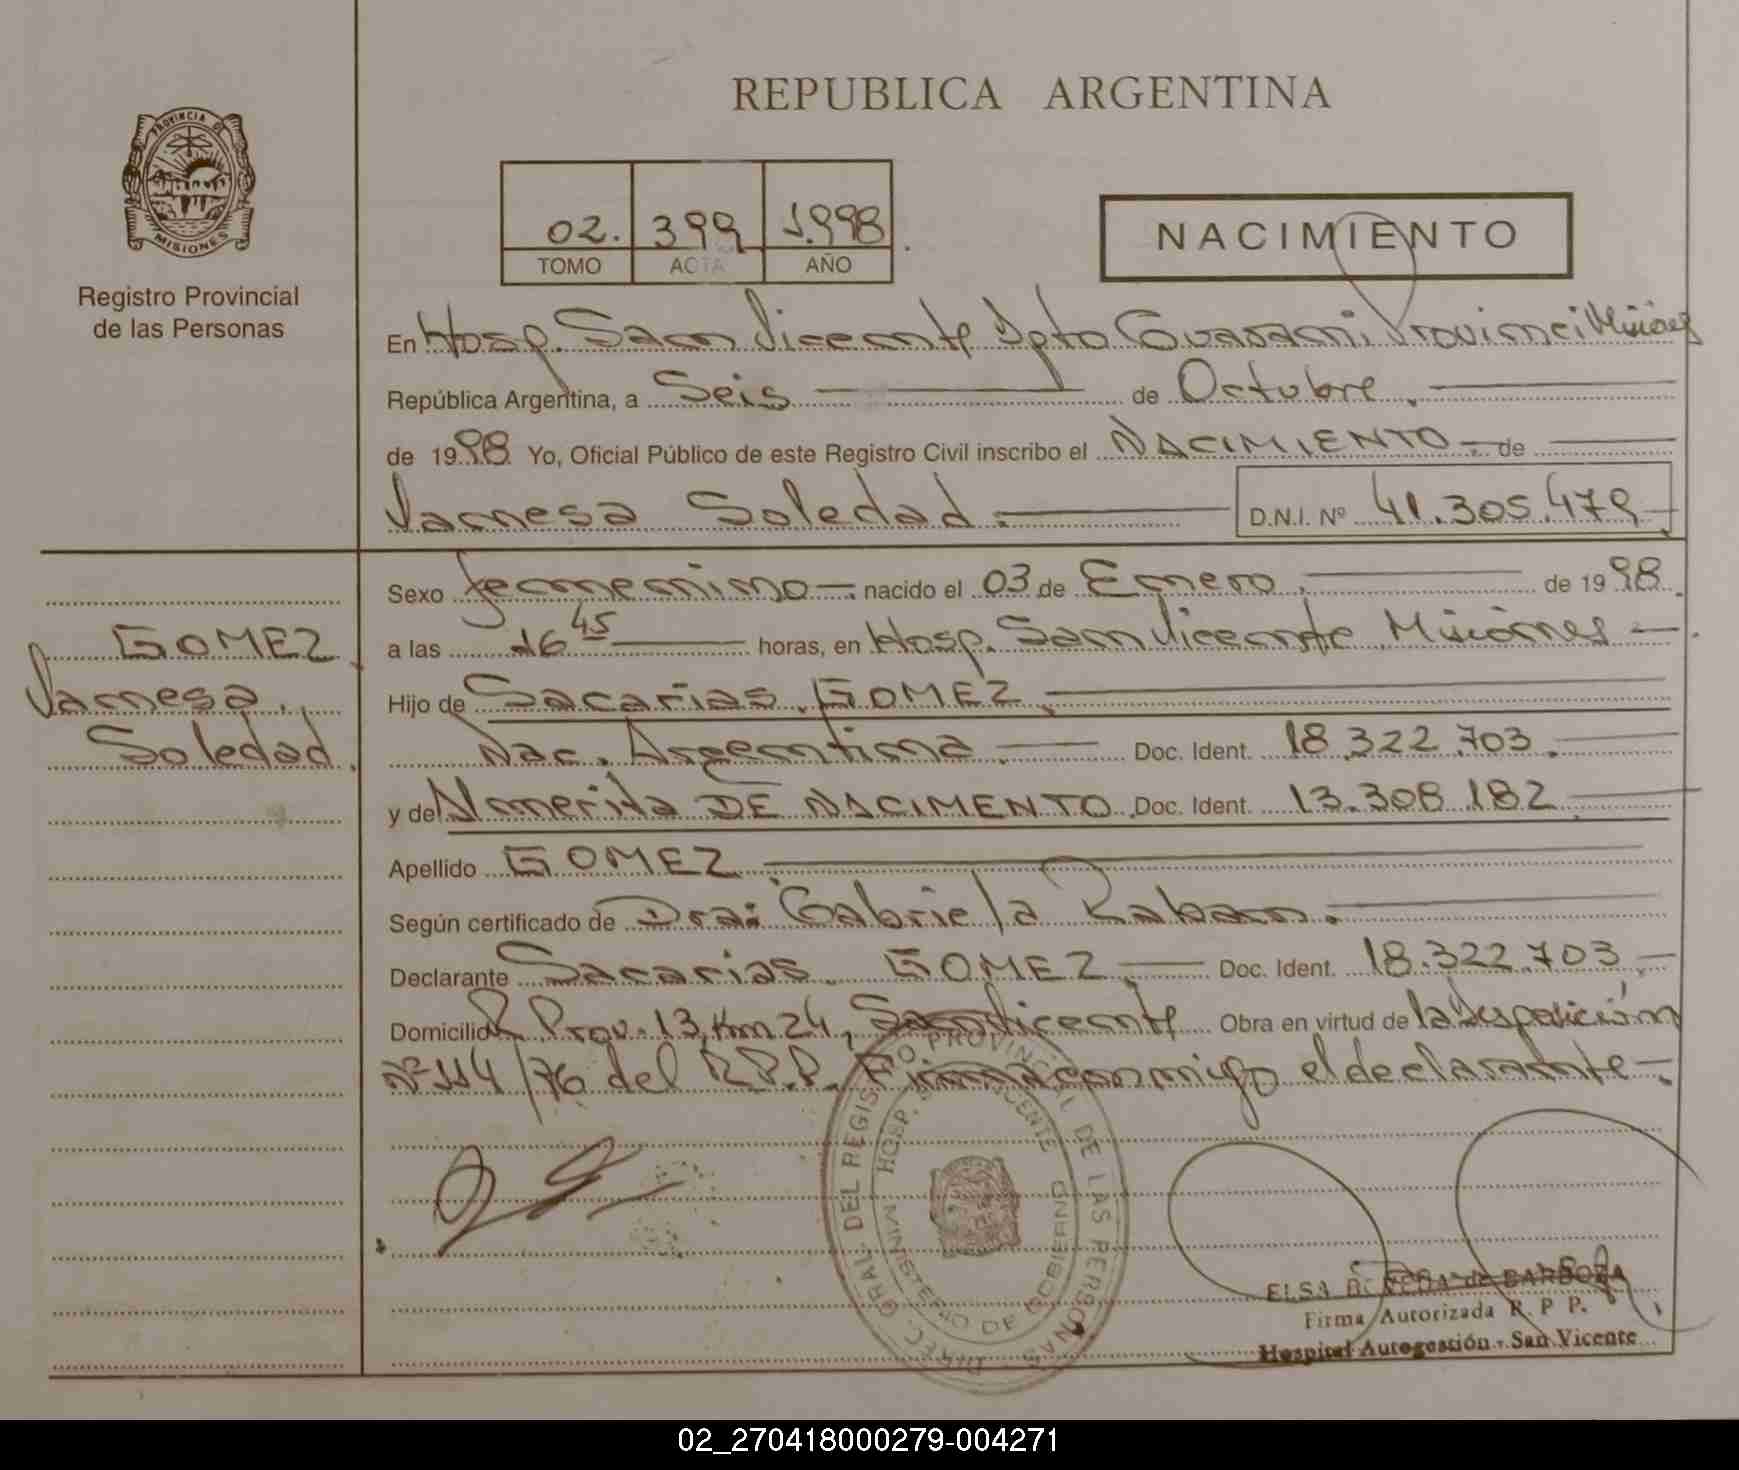 REPUBLICA ARGENTINA
PROVINCIA DE
MISIONES
Registro Provincial
de las Personas
02. 399 1.998
TOMO ACTA AÑO
NACIMIENTO
En Hosp. San Vicente Dpto Guarani, Provinci Misiones
República Argentina, a Seis de Octubre.
de 1998 Yo, Oficial Público de este Registro Civil inscribo el NACIMIENTO de
Vanesa Soledad. D.N.I. Nº 41.305.479
Sexo femenino nacido el 03 de Enero de 1998.
a las 16 45 horas, en Hosp. San Vicente Misiones
GOMEZ
Vanesa
Soledad
Hijo de Sacarias GOMEZ
Nac. Argentina. Doc. Ident. 18.322.703.
y de Almerita DE NACIMENTO Doc. Ident. 13.308.182
Apellido GOMEZ
Según certificado de Dra: Gabriela
Declarante Sacarias GOMEZ Doc. Ident. 18.322.703
Domicilio R. Prov. 13, Km 24, San Vicente Obra en virtud de la Disposición
Nº 114/76 del R.P.P. Firma conmigo el declarante
DIREC. GRAL. DEL REGISTRO PROVINCIAL DE LAS PERSONAS
HOSP. SAN VICENTE
MINISTERIO DE GOBIERNO
ELSA de BARBOZA
Firma Autorizada R. P P.
Hospital Autogestión - San Vicente
02_270418000279-004271